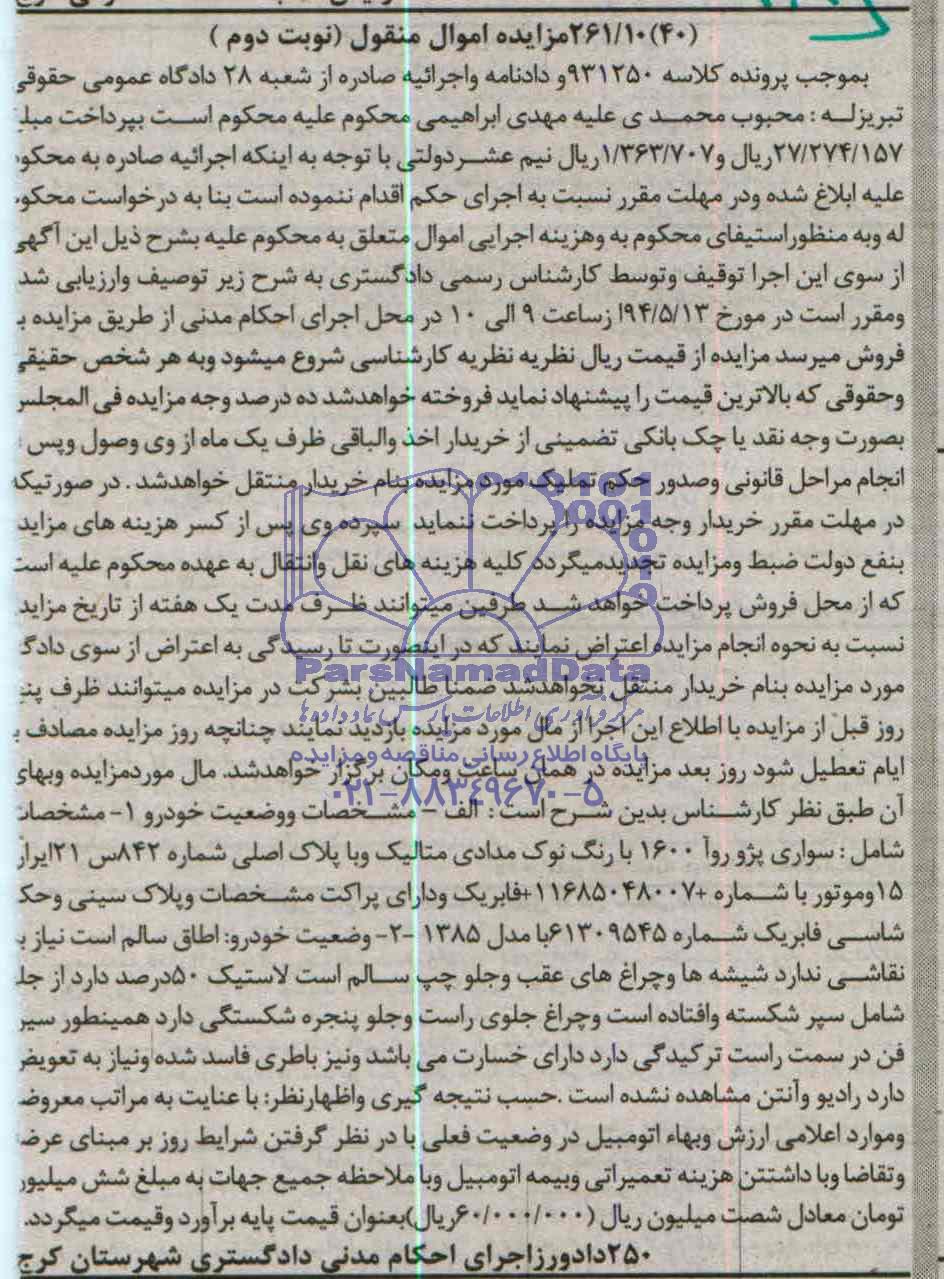 ۲۶۱/۱۰(۴۰)مزایده اموال منقول (نوبت دوم )
بموجب پرونده کلاسه ۹۳۱۲۵۰و دادنامه واجرائیه صادره از شعبه ۲۸ دادگاه عمومی حقوقی
تبریزلـه : محبوب محمـد ی علیه مهدی ابراهیمی محکوم علیه محکوم است بپرداخت مبلغ
۲۷/۲۷۴/۱۵۷ریال و۱/۳۶۳/۷۰۷ریال نیم عشـردولتی با توجه به اینکه اجرائیه صادره به محکوم
علیه ابلاغ شده ودر مهلت مقرر نسبت به اجرای حکم اقدام ننموده است بنا به درخواست محکوم
له وبه منظوراستیفای محکوم به وهزینه اجرایی اموال متعلق به محکوم علیه بشرح ذیل این آگهی
از سوی این اجرا توقیف وتوسط کارشناس رسمی دادگستری به شرح زیر توصیف وارزیابی شد
ومقرر است در مورخ ۹۴/۵/۱۳ا زساعت ۹ الی ۱۰ در محل اجرای احکام مدنی از طریق مزایده ب
فروش میرسد مزایده از قیمت ریال نظریه نظریه کارشناسی شروع میشود وبه هر شخص حقیقی
وحقوقی که بالاترین قیمت را پیشنهاد نماید فروخته خواهدشد ده درصد وجه مزایده فی المجلس
بصورت وجه نقد یا چک بانکی تضمینی از خریدار اخذ والباقی ظرف یک ماه از وی وصول وپس
انجام مراحل قانونی وصدور حکم تملیک مورد مزایده بنام خریدار منتقل خواهدشد . در صورتیکه
در مهلت مقرر خریدار وجه مزایده را پرداخت ننماید سپرده وی پس از کسر هزینه های مزاید
بنفع دولت ضبط ومزایده تجدیدمیگردد کلیه هزینه های نقل وانتقال به عهده محکوم علیه است
که از محل فروش پرداخت خواهد شد طرفین میتوانند ظرف مدت یک هفته از تاریخ مزاید
نسبت به نحوه انجام مزایده اعتراض نمایند که در اینصورت تا رسیدگی به اعتراض از سوی دادگ
مورد مزایده بنام خریدار منتقل نخواهدشد ضمنا طالبین بشرکت در مزایده میتوانند ظرف پنج
روز قبل از مزایده با اطلاع این اجرا از مال مورد مزایده بازدید نمایند چنانچه روز مزایده مصادف ب
ایام تعطیل شود روز بعد مزایده در همان ساعت ومکان برگزار خواهدشد. مال موردمزایده وبهای
آن طبق نظر کارشناس بدین شـرح است : الف – مشـخصات ووضعیت خودرو ۱- مشخصات
شامل : سواری پژو روآ ۱۶۰۰ با رنگ نوک مدادی متالیک وبا پلاک اصلی شماره ۸۴۲س ۲۱ایران
۱۵وموتور با شـماره +۱۱۶۸۵۰۴۸۰۰۷+فابریک ودارای پراکت مشـخصات وپلاک سینی وحک
شاسـی فابریک شـماره ۶۱۳۰۹۵۴۵با مدل ۱۳۸۵ -۲- وضعیت خودرو: اطاق سالم است نیاز ب
نقاشـی ندارد شیشه ها وچراغ های عقب وجلو چپ سـالم است لاستیک ۵۰درصد دارد از جل
شامل سپر شکسته وافتاده است وچراغ جلوی راست وجلو پنجره شکستگی دارد همینطور سپر
فن در سمت راست ترکیدگی دارد دارای خسارت می باشد ونیز باطری فاسد شده ونیاز به تعویض
دارد رادیو وآنتن مشاهده نشده است .حسب نتیجه گیری واظهارنظر: با عنایت به مراتب معروضه
وموارد اعلامی ارزش وبهاء اتومبیل در وضعیت فعلی با در نظر گرفتن شرایط روز بر مبنای عرضه
وتقاضا وبا داشتتن هزینه تعمیراتی وبیمه اتومبیل وبا ملاحظه جمیع جهات به مبلغ شش میلیون
تومان معادل شصت میلیون ریال (۶۰/۰۰۰/۰۰۰ریال)بعنوان قیمت پایه برآورد وقیمت میگردد.
۲۵۰دادورزاجرای احکام مدنی دادگستری شهرستان کرج
ParsNamadData
مرکز فرآوری اطلاعات پارس نماد داده ها
پایگاه اطلاع رسانی مناقصه ومزایده
۰۲۱-۸۸۳۴۹۶۷۰-۵